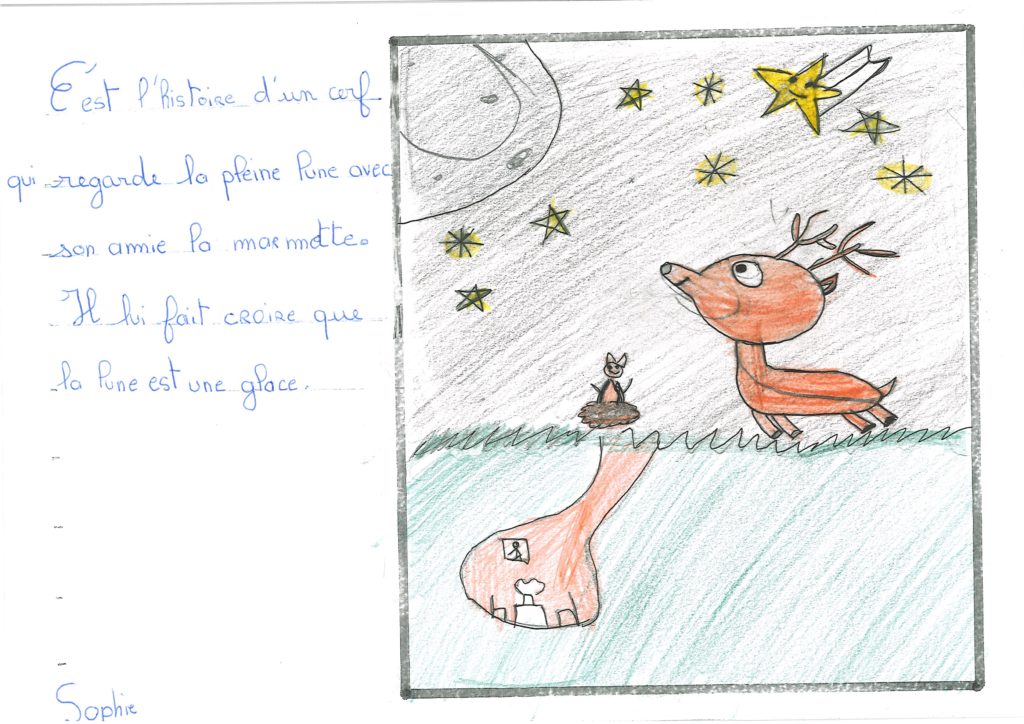 C'est l'histoire d'un cerf
qui regarde la pleine lune avec
son amie la marmotte.
Il lui fait croire que
la lune est une glace.
Sophie